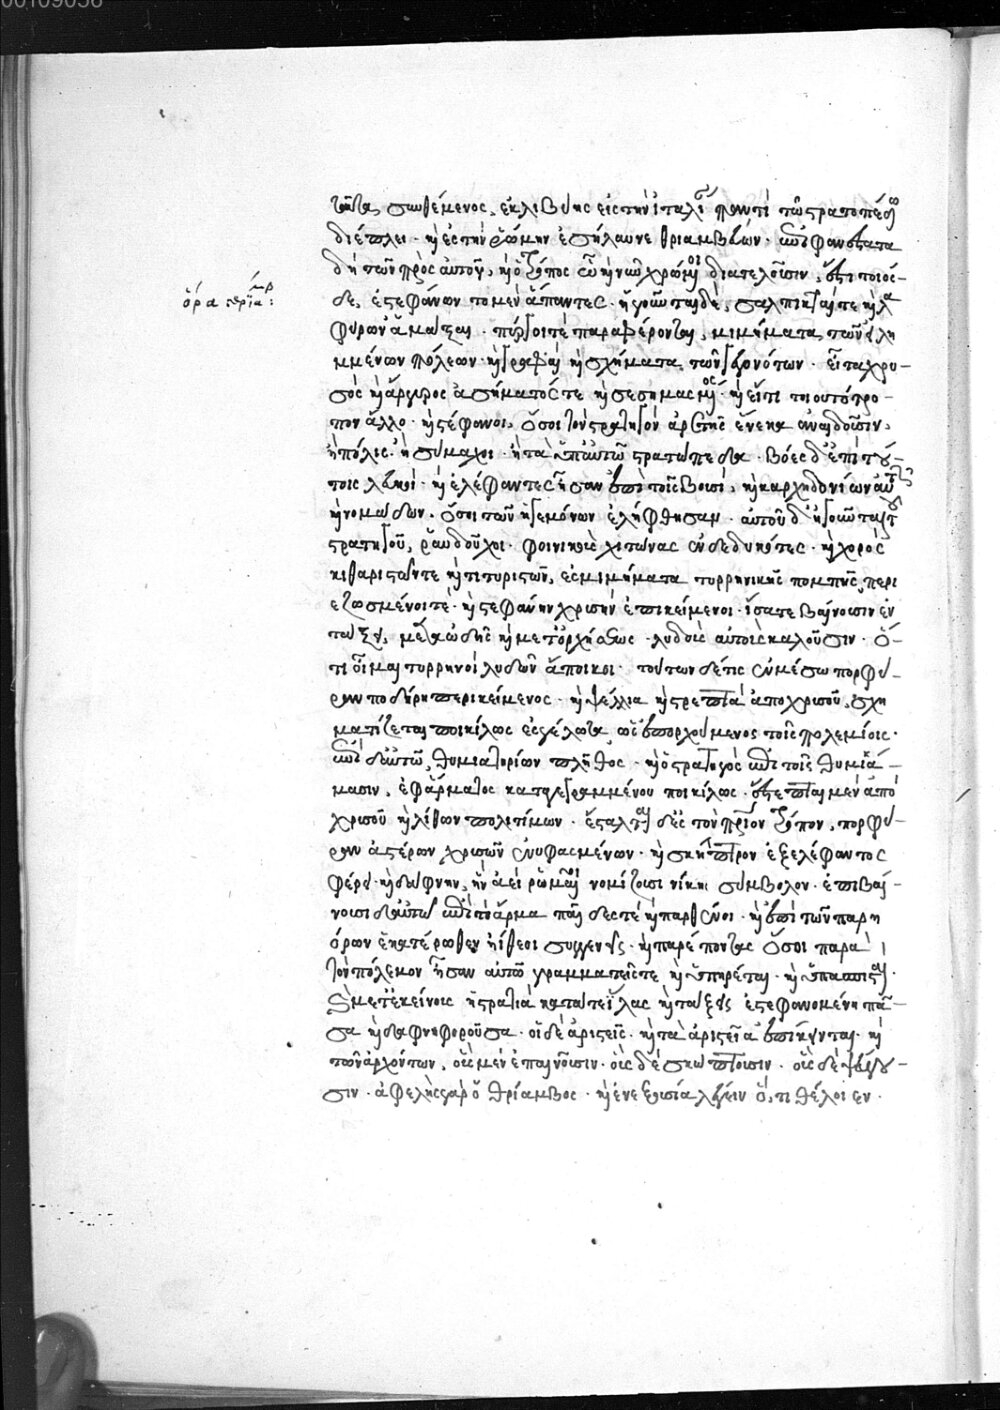 00109056
ταῦτα συνθέμενος, ἐκ λιβύης εἰς τὴν ἰταλίαν παντὶ τῷ στρατοπέδῳ
διέπλει· καὶ ἐς τὴν ῥώμην ἐσήλαυνε θριαμβεύων· ἐπιφανέστατα
δὴ τῶν πρὸς αὐτοῦ, καὶ ὁ τρόπος ᾧ καὶ νῦν χρώμενοι διατελοῦσιν, ἔστι τοιόσ-
δε, ἐστεφάνωνται μὲν ἅπαντες· ἡγοῦνται δὲ, σαλπικταί τε καὶ λα
φύρων ἅμαξαι· πύργοι τὲ παραφέρονται, μιμήματα τῶν εἰλη
μμένων πόλεων· καὶ γραφαὶ καὶ σχήματα τῶν γεγονότων· εἶτα χρυ-
σὸς καὶ ἄργυρος ἀσήμαντός τε καὶ σεσημασμένος· καὶ εἴ τι τοιουτότρο-
πον ἄλλο· καὶ στέφανοι, ὅσοι τὸν στρατηγὸν ἀρετῆς ἕνεκα ἀναδοῦσιν,
ἢ πόλις· ἢ σύμαχοι· ἢ τὰ ὑπ' αὐτῷ στρατόπεδα· βόες δ' ἐπὶ τού-
τοις λευκοί· καὶ ἐλέφαντες ἦσαν ἐπὶ τοῖς βουσὶ, καὶ καρχηδονίων αὐτῶν
καὶ νομάδων. ὅσοι τῶν ἡγεμόνων ἐλήφθησαν· αὐτοῦ δ' ἡγοῦνται τοῦ
στρατηγοῦ, ῥαυδοῦχοι· φοινικοῖς χιτῶνας ἐνδεδυκότες· καὶ χορὸς
κιθαριστῶν τε καὶ τιτυριστῶν, ἐς μιμήματα τυρρηνικῆς πομπῆς, περι
εζωσμένοι τὲ· καὶ στεφάνην χρυσῆν ἐπικείμενοι· ἴσα τε βαίνουσιν ἐν
τάξει, μετὰ ᾠδῆς καὶ μετ' ὀρχήσεως· λυδοὺς αὐτοὺς καλοῦσιν· ὅ-
τι οἶμαι τυρρηνοὶ λυδῶν ἄποικοι· τούτων δέ τις ἐν μέσω πορφύ-
ραν ποδήρη περικείμενος· καὶ ψέλλια καὶ στρεπτὰ ἀπὸ χρυσοῦ, σχη
ματίζεται ποικίλως ἐς γέλωτα, ὡς ἐπορχούμενος τοῖς πολεμίοις·
ἐπὶ δ' αὐτῷ, θυμιατηρίων πλῆθος· καὶ ὁ στρατηγὸς ἐπὶ τοῖς θυμιά-
μασιν, ἐφ' ἅρματος καταγεγραμμένου ποικίλως· ἔστεπται μὲν ἀπὸ
χρυσοῦ καὶ λίθων πολυτίμων· ἔσταλται δ' ἐς τὸν πάτριον τρόπον, πορφύ-
ραν ἀστέρων χρυσῶν ἐνυφασμένων· καὶ σκῆπτρον ἐξ ἐλέφαντος
φέρει· καὶ δάφνην, ἣν ἀεὶ ῥωμαῖοι νομίζουσι νίκης σύμβολον· ἐπιβαί-
νουσι δ' αὐτῷ ἐπὶ τὸ ἅρμα παῖδές τε καὶ παρθένοι· καὶ ἐπὶ τῶν παρη
όρων ἑκατέρωθεν ἠΐθεοι συγγενεῖς· καὶ παρέπονται ὅσοι παρὰ
τὸν πόλεμον ἦσαν αὐτῷ γραμματεῖς τε καὶ ὑπηρέται· καὶ ὑπασπισταὶ·
καὶ μετ' ἐκείνοις ἡ στρατιὰ κατά τε ἴλας καὶ τάξεις ἐστεφανωμένη πᾶ-
σα καὶ δαφνηφοροῦσα· οἱ δὲ ἀριστεῖς· καὶ τὰ ἀριστεῖα ἐπίκεινται· καὶ
τῶν ἀρχόντων, οὓς μὲν ἐπαινοῦσιν· οὓς δὲ σκώπτουσιν· οὓς δὲ ψέγου-
σιν· ἀφελὴς γὰρ ὁ θρίαμβος· καὶ ἐν ἐξουσία λέγειν ὅ,τι θέλοιεν·